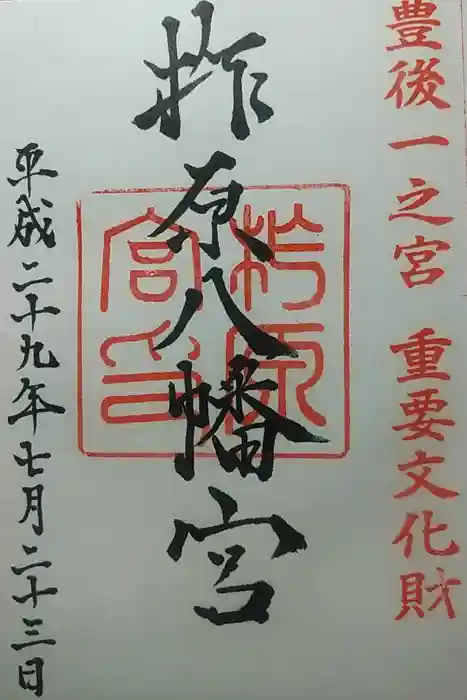 豊後一之宮 重要文化財
柞原八幡宮
柞原宮印
平成二十九年七月二十三日